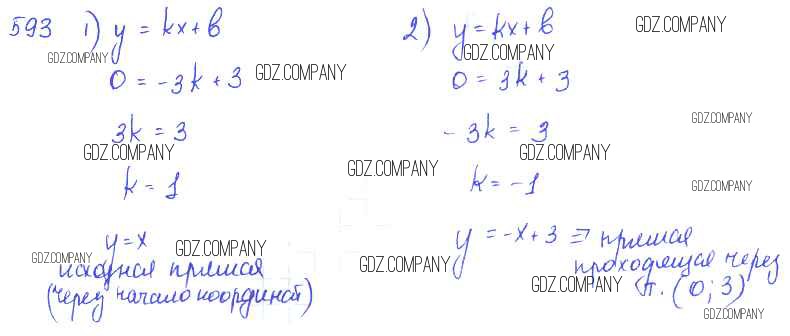 593 1) y = kx + b
0 = -3k + 3
3k = 3
k = 1
y = x
искомая прямая
(через начало координат)
2) y = kx + b
0 = 3k + 3
-3k = 3
k = -1
y = -x + 3 => прямая
проходящая через
т. (0; 3)
GDZ.COMPANY
GDZ.COMPANY
GDZ.COMPANY
GDZ.COMPANY
GDZ.COMPANY
GDZ.COMPANY
GDZ.COMPANY
GDZ.COMPANY
GDZ.COMPANY
GDZ.COMPANY
GDZ.COMPANY
GDZ.COMPANY
GDZ.COMPANY
GDZ.COMPANY